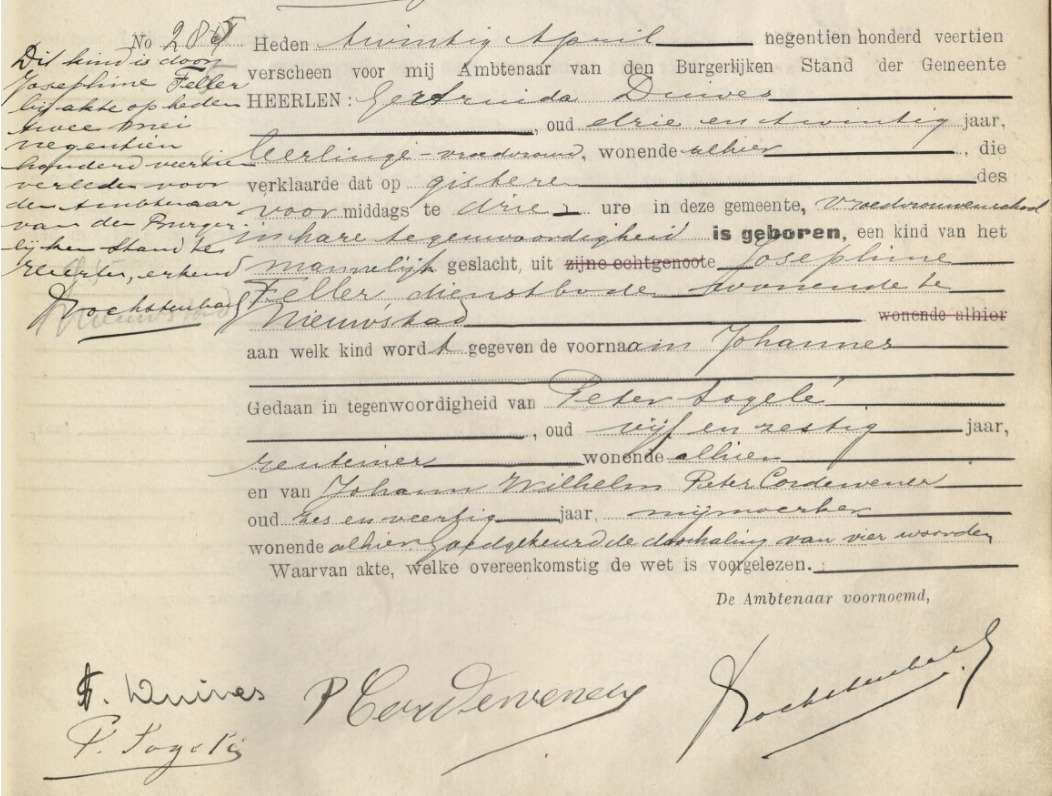 No 285
Dit kind is door
Josephine Feller
bij akte op heden
twee mei
negentien
honderd veertien
verleden voor
den Ambtenaar
van den Burger-
lijken Stand te
erkend
Heden twintig April negentien honderd veertien
verscheen voor mij Ambtenaar van den Burgerlijken Stand der Gemeente
HEERLEN: Gertruida Duives
, oud drie en twintig jaar,
leerlinge-vroedvrouw, wonende alhier, die
verklaarde dat op gisteren des
voormiddags te drie ure in deze gemeente, vroedvrouwenschool
in hare tegenwoordigheid is geboren, een kind van het
mannelijk geslacht, uit zijne echtgenoote Josephine
Feller, dienstbode wonende te
Nieuwstad wonende alhier
aan welk kind wordt gegeven de voornaam Johannes
Gedaan in tegenwoordigheid van Peter
, oud vijf en zestig jaar,
rentenier wonende alhier
en van Johann Wilhelm Peter Cordewener
oud zes en veertig jaar, mijnwerker
wonende alhier. Goedgekeurd de doorhaling van vier woorden
Waarvan akte, welke overeenkomstig de wet is voorgelezen.
De Ambtenaar voornoemd,
G. Duives
P Cordewener